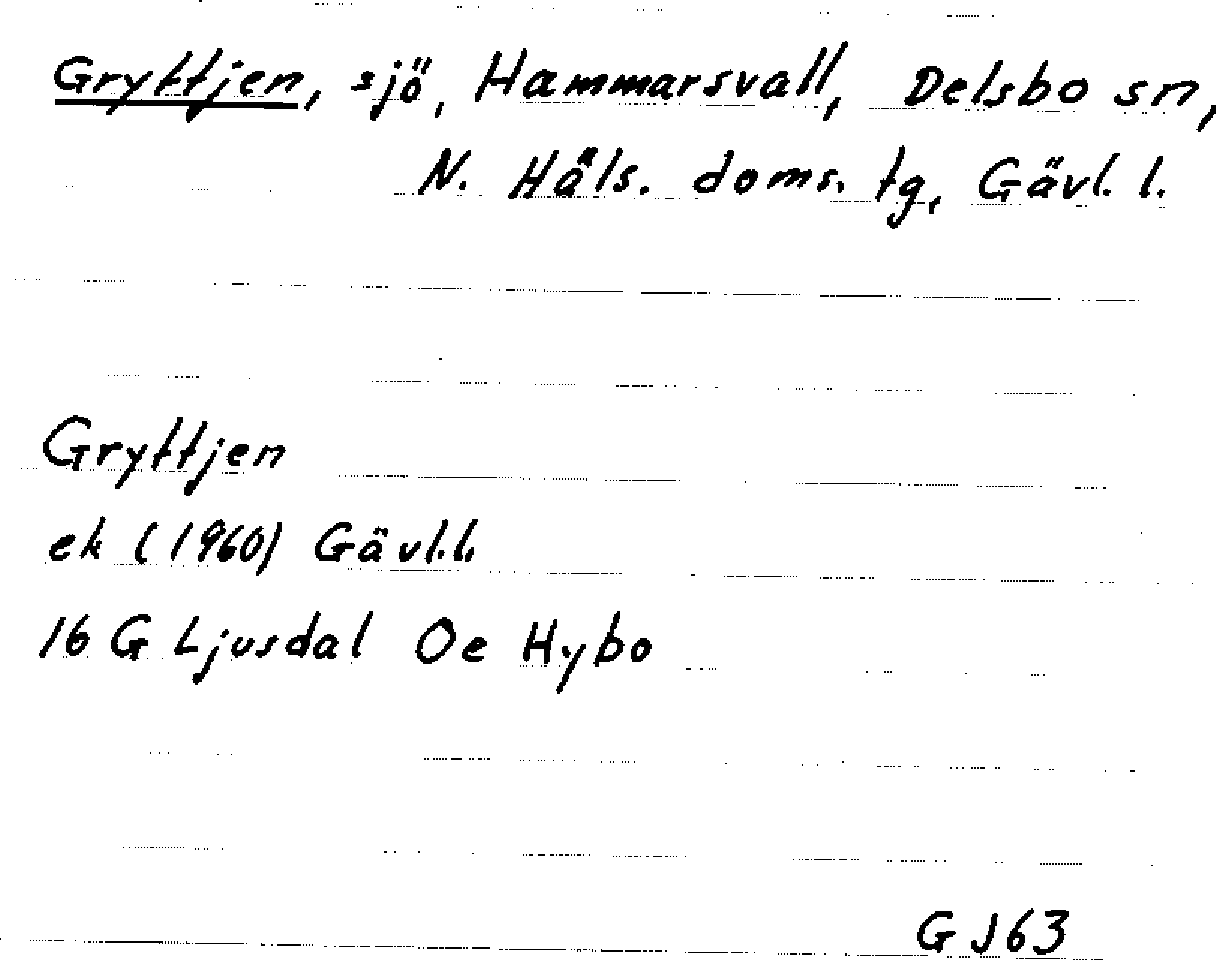 Gryttjen, sjö, Hammarsvall, Delsbo sn,
N. Häls. doms. tg, Gävl. l.
Gryttjen
ek (1960) Gävl.l.
16 G Ljusdal Oe Hybo
GJ63